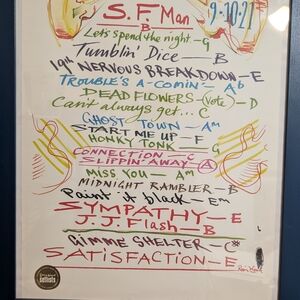 9-30-21
S.F. Man
B
Let's spend the night — G
Tumblin' Dice — B
19th NERVOUS BREAKDOWN — E
TROUBLE'S A-COMIN' — Ab
DEAD FLOWERS (Vote) — D
Can't always get... C
GHOST TOWN — Am
START ME UP — F
HONKY TONK — G
CONNECTION — C
SLIPPIN' AWAY — A
MISS YOU — Am
MIDNIGHT RAMBLER — B
Paint it black — Em
SYMPATHY — E
J.J. Flash — B
GIMME SHELTER — C#
SATISFACTION — E
setlists